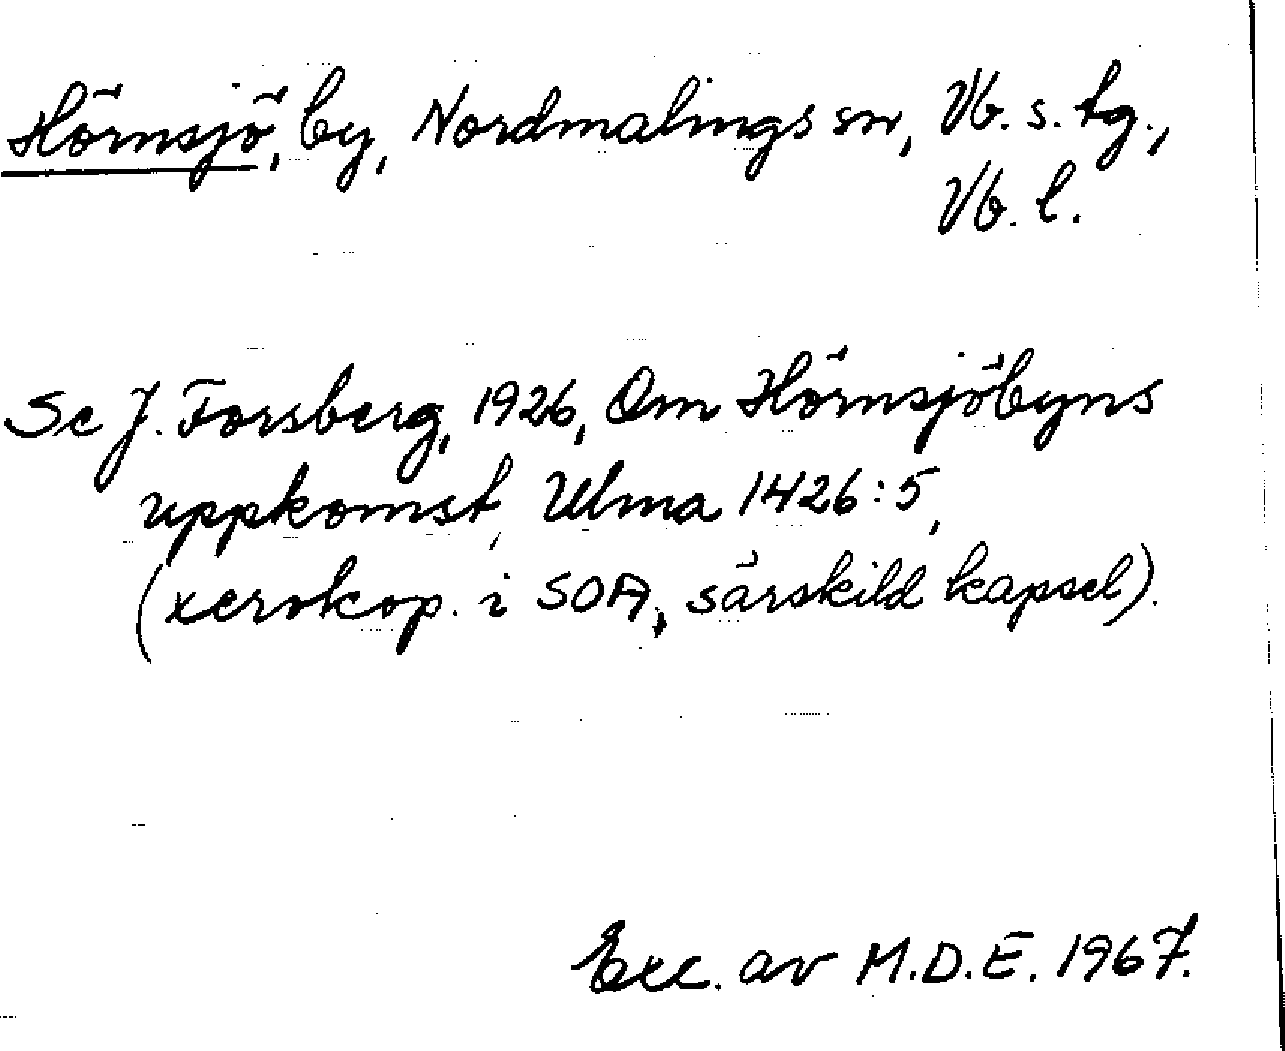 Hörnsjö, by, Nordmalings sn, Vb. s. tg.,
Vb. l.
Se J. Forsberg, 1926, Om Hörnsjöbyns
uppkomst, Ulma 1426:5,
(xerokop. i SOA, särskild kapsel).
Exc. av M.D.E. 1967.